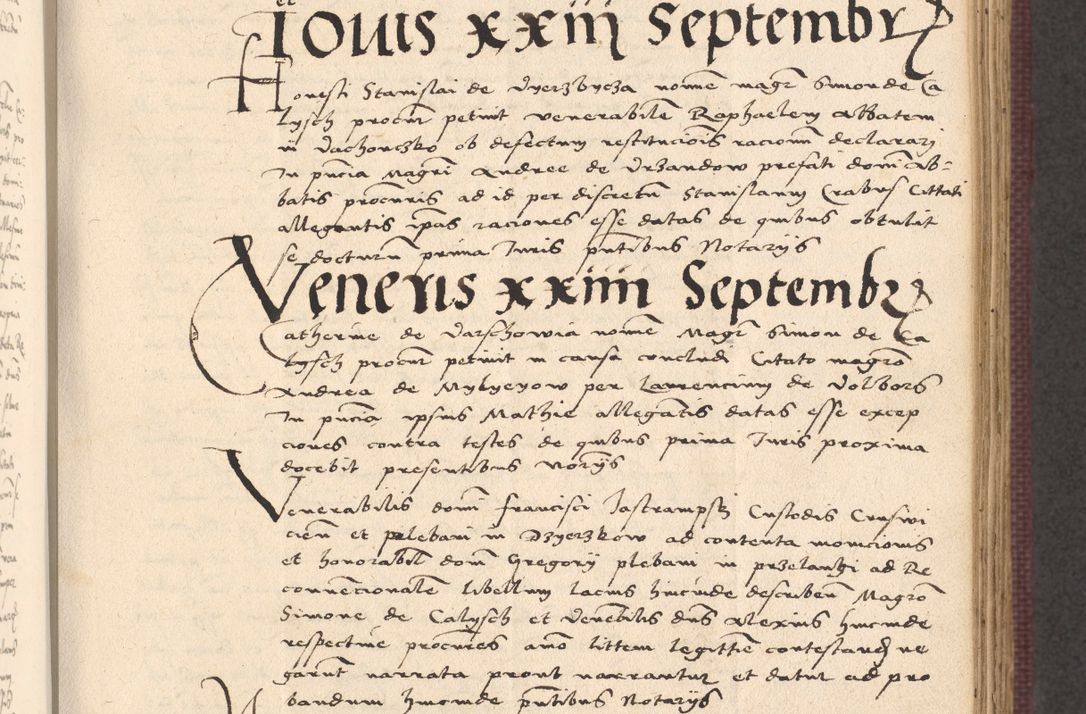 Iouis xxiij Septembr
Honesti Stanislai de Vyerzbycza nomie magr Simon de Ca
lysch procur petivit venerabilem Raphaelem Abbatem
in Vachonczko ob defectum restitucionis racionum declarari
In pncia Magri Andree de Vrzandow prefati domi Ab-
batis procuris ad id per discretum Stanislaum Crabus Cittati
allegantis ipas raciones esse datas de quibus obtulit
se docturum prima Iuris pntibus Notarijs
Veneris xxiiij Septembr
Catherine de Varschowia nomie Magr Simon de Ca
lysch procur petivit in causa concludi Citato magro
Andrea de Mykyeyow per Laurencium de Volbors
In pncia ipsius Mathie allegatis datas esse excep
ciones contra testes de quibus prima Iuris proxima
docebit presentibus norijs
Venerabilis domi Francisci Jastrampski Custodis Crusvi
cien et plebani in Dzyerzkow ad contenta monicionis
et honorabil dom Gregorij plebani in przelanki ad Re
convencionale libellum lacius hincinde describen Magro
Simone de Calysch et Venebilis dns Alexius hincinde
respective procures ano littem legittie contestand ne
garunt narrata prout narrantur et datur ad pro
bandum hincinde pntibus Notarijs